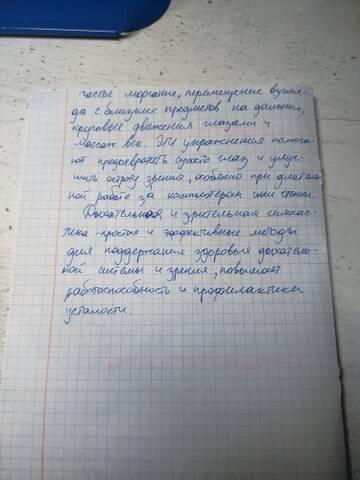 частое моргание, перемещение взгля-
да с близких предметов на дальние,
круговые движения глазами и
массаж век. Эти упражнения помога-
ют предотвратить сухость глаз и улуч-
шить остроту зрения, особенно при длитель-
ной работе за компьютером или чтении.
Дыхательная и зрительная гимнас-
тика - простые и эффективные методы
для поддержания здоровья дыхатель-
ной системы и зрения, повышает
работоспособность и профилактики
усталости.